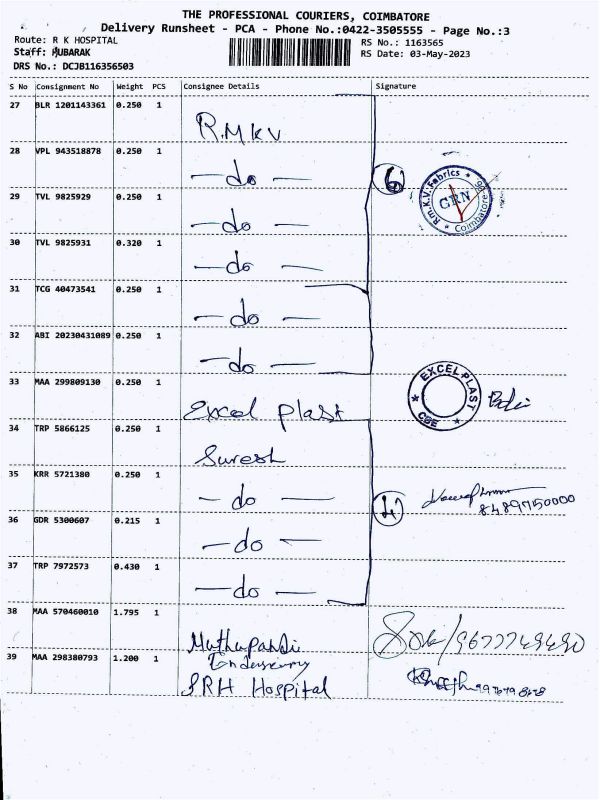 THE PROFESSIONAL COURIERS, COIMBATORE
Delivery Runsheet - PCA - Phone No.:0422-3505555 - Page No.:3
Route: R K HOSPITAL
RS No.: 1163565
Staff: MUBARAK
RS Date: 03-May-2023
DRS No.: DCJB116356503
S No Consignment No Weight PCS Consignee Details Signature
27 BLR 1201143361 0.250 1
R.M K V
28 VPL 943518878 0.250 1
— do —
6
Rm.K.V.Fabrics * Coimbatore *
GRN
29 TVL 9825929 0.250 1
— do —
30 TVL 9825931 0.320 1
— do —
31 TCG 40473541 0.250 1
— do —
32 ABI 20230431089 0.250 1
— do —
33 MAA 299809130 0.250 1
Excel plast
EXCEL PLAST * CBE *
34 TRP 5866125 0.250 1
Suresh
35 KRR 5721380 0.250 1
— do —
4
8489750000
36 GDR 5300607 0.215 1
— do —
37 TRP 7972573 0.430 1
— do —
38 MAA 570460010 1.795 1
Muthupandi
39 MAA 298380793 1.200 1
Hospital